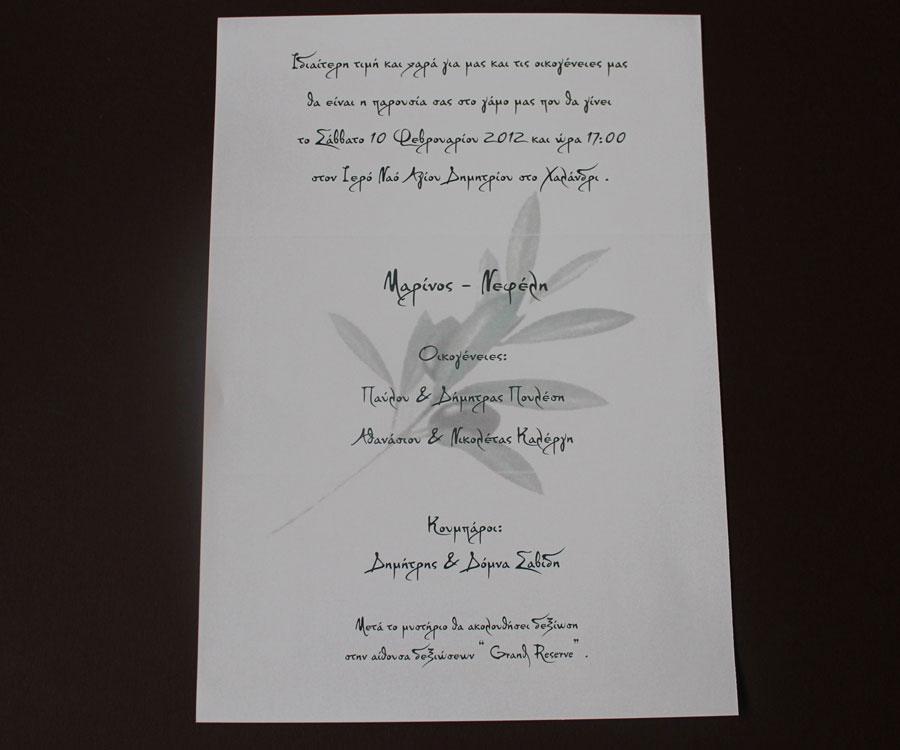 Ιδιαίτερη τιμή και χαρά για μας και τις οικογένειες μας
θα είναι η παρουσία σας στο γάμο μας που θα γίνει
το Σάββατο 10 Φεβρουαρίου 2012 και ώρα 17:00
στον Ιερό Ναό Αγίου Δημητρίου στο Χαλάνδρι .
Μαρίνος - Νεφέλη
Οικογένειες:
Παύλου & Δήμητρας Πουλέση
Αθανάσιου & Νικολέτας Καλέργη
Κουμπάροι:
Δημήτρης & Δόμνα Σαβίδη
Μετά το μυστήριο θα ακολουθήσει δεξίωση
στην αίθουσα δεξιώσεων " Grand Reserve" .